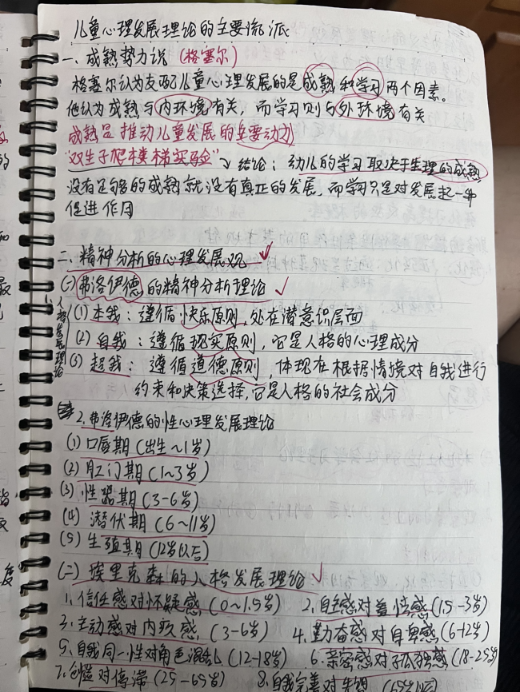 儿童心理发展理论的主要流派
一、成熟势力说 (格塞尔)
格塞尔认为支配儿童心理发展的是成熟和学习两个因素。
他认为成熟与内环境有关，而学习则与外环境有关
成熟是推动儿童发展的主要动力
"双生子爬楼梯实验" 结论：幼儿的学习取决于生理的成熟
没有足够的成熟就没有真正的发展，而学习只是对发展起一种
促进作用
二、精神分析的心理发展观
(一)弗洛伊德的精神分析理论
人格发展理论
(1)本我：遵循快乐原则，处在潜意识层面
(2)自我：遵循现实原则，它是人格的心理成分
(3)超我：遵循道德原则，体现在根据情境对自我进行
约束和决策选择，它是人格的社会成分
2.弗洛伊德的性心理发展理论
(1)口唇期(出生~1岁)
(2)肛门期(1~3岁)
(3)性器期(3-6岁)
(4)潜伏期(6~11岁)
(5)生殖期(12岁以后)
(二)埃里克森的人格发展理论
1.信任感对怀疑感(0~1.5岁) 2.自主感对羞怯感(1.5-3岁)
3.主动感对内疚感(3-6岁) 4.勤奋感对自卑感(6-12岁)
5.自我同一性对角色混乱(12-18岁) 6.亲密感对孤独感(18-25岁)
7.创造对停滞(25-65岁) 8.自我完善对失望